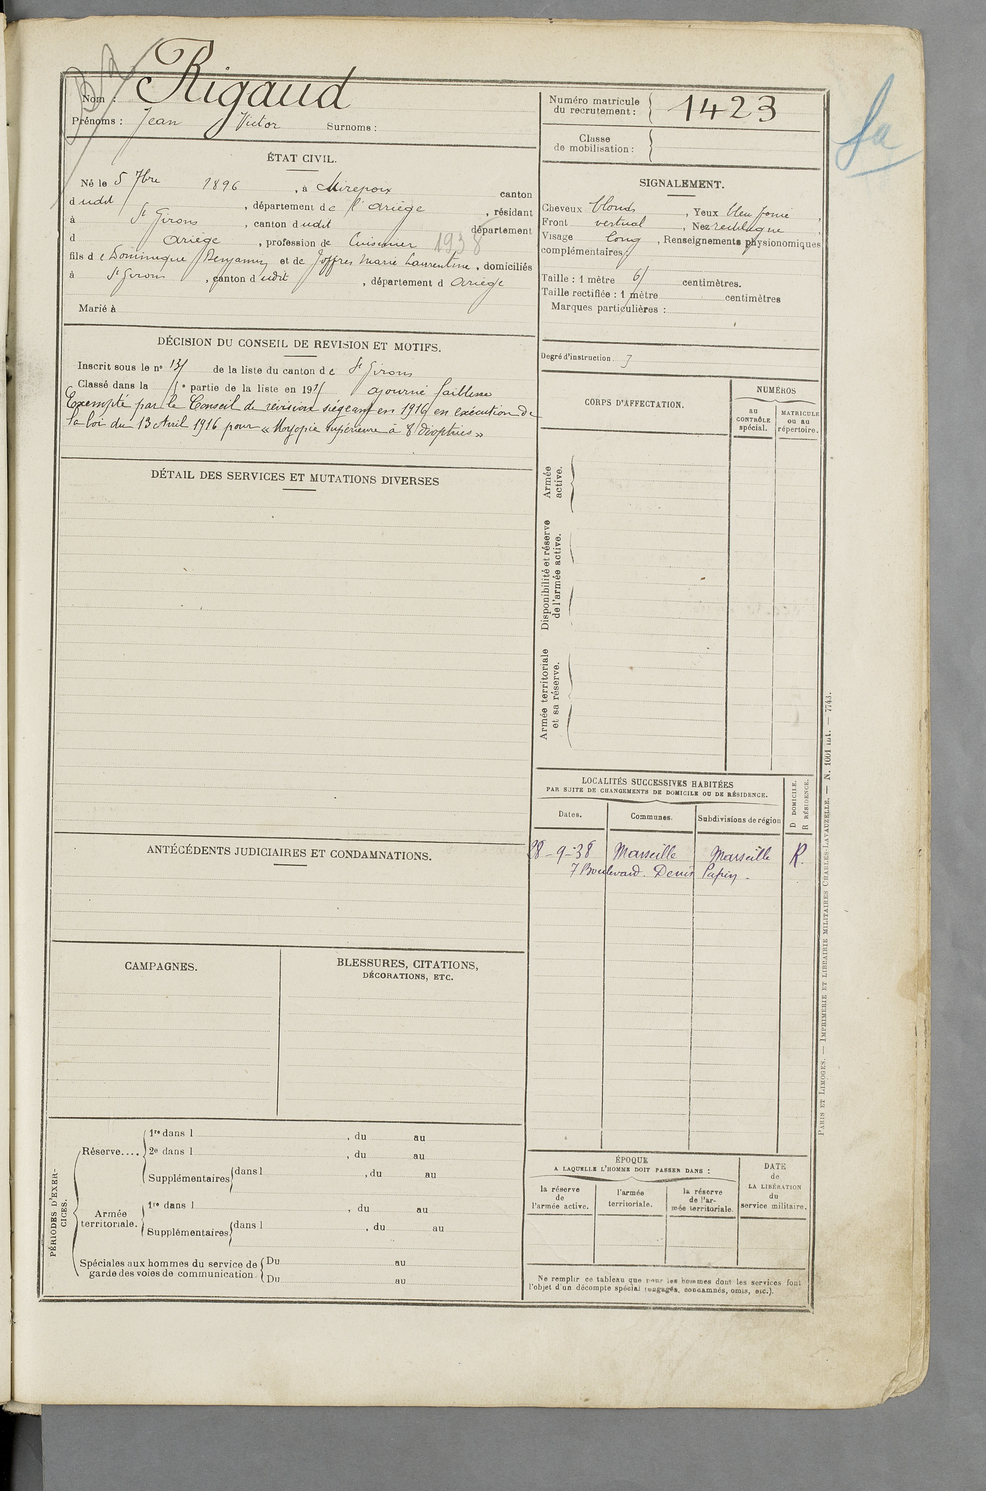 Rigaud
Nom :
Prénoms : Jean Victor Surnoms :
ÉTAT CIVIL.
Né le 5 7bre 1896 , à Mirepoix canton
dudit , département de l'Ariège , résidant
à St Girons , canton dudit département
d Ariège , profession de Cuisinier 1938
fils de Dominique Benjamin et de Joffres Marie Laurentine , domiciliés
à St Girons , canton dudit , département d Ariège
Marié à
DÉCISION DU CONSEIL DE REVISION ET MOTIFS.
Inscrit sous le no de la liste du canton de St Girons
Classé dans la partie de la liste en 191 ajourné faiblesse
Exempté par le Conseil de révision siégeant en 1916 en exécution de
la loi du 13 Avril 1916 pour « Myopie supérieure à 8 dioptries »
DÉTAIL DES SERVICES ET MUTATIONS DIVERSES
ANTÉCÉDENTS JUDICIAIRES ET CONDAMNATIONS.
CAMPAGNES.
BLESSURES, CITATIONS,
DÉCORATIONS, ETC.
PÉRIODES D'EXERCICES.
Réserve....
1re dans l , du au
2e dans l , du au
Supplémentaires dans l , du au
Armée territoriale.
1re dans l , du au
Supplémentaires dans l , du au
Spéciales aux hommes du service de garde des voies de communication.
Du au
Du au
Numéro matricule du recrutement : 1423
Classe de mobilisation :
SIGNALEMENT.
Cheveux blonds , Yeux bleu foncé ,
Front vertical , Nez rectiligne ,
Visage long , Renseignements physionomiques
complémentaires :
Taille : 1 mètre 61 centimètres.
Taille rectifiée : 1 mètre centimètres
Marques particulières :
Degré d'instruction. 3
CORPS D'AFFECTATION.
NUMÉROS
au CONTRÔLE spécial.
MATRICULE ou au répertoire.
Armée active.
Disponibilité et réserve de l'armée active.
Armée territoriale et sa réserve.
LOCALITÉS SUCCESSIVES HABITÉES
PAR SUITE DE CHANGEMENTS DE DOMICILE OU DE RÉSIDENCE.
D DOMICILE.
R RÉSIDENCE.
Dates. Communes. Subdivisions de région
28-9-38 Marseille Marseille R.
7 Boulevard Denis Papin -
ÉPOQUE
A LAQUELLE L'HOMME DOIT PASSER DANS :
la réserve de l'armée active.
l'armée territoriale.
la réserve de l'armée territoriale.
DATE de LA LIBÉRATION du service militaire.
Ne remplir ce tableau que pour les hommes dont les services font
l'objet d'un décompte spécial (engagés, condamnés, omis, etc.).
PARIS ET LIMOGES. — IMPRIMERIE ET LIBRAIRIE MILITAIRES CHARLES-LAVAUZELLE. — N. 1001 int. — 7743.